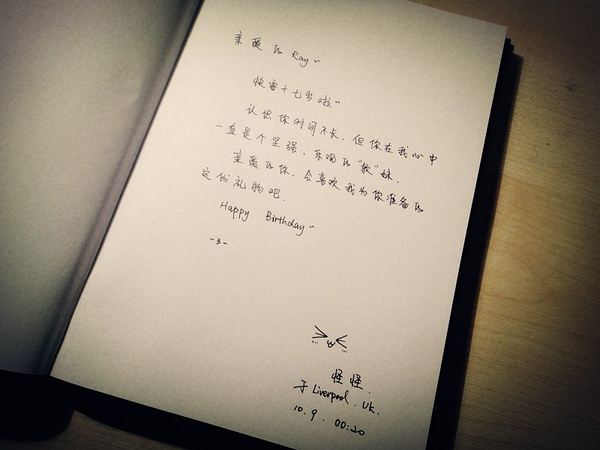 亲爱的 Ray~
快要十七岁啦~
认识你时间不长，但你在我心中
一直是个坚强、乐观的“软”妹.
亲爱的你，会喜欢我为你准备的
这份礼物吧.
Happy Birthday~
-3-
怪怪.
于 Liverpool . UK.
10. 9. 00:20